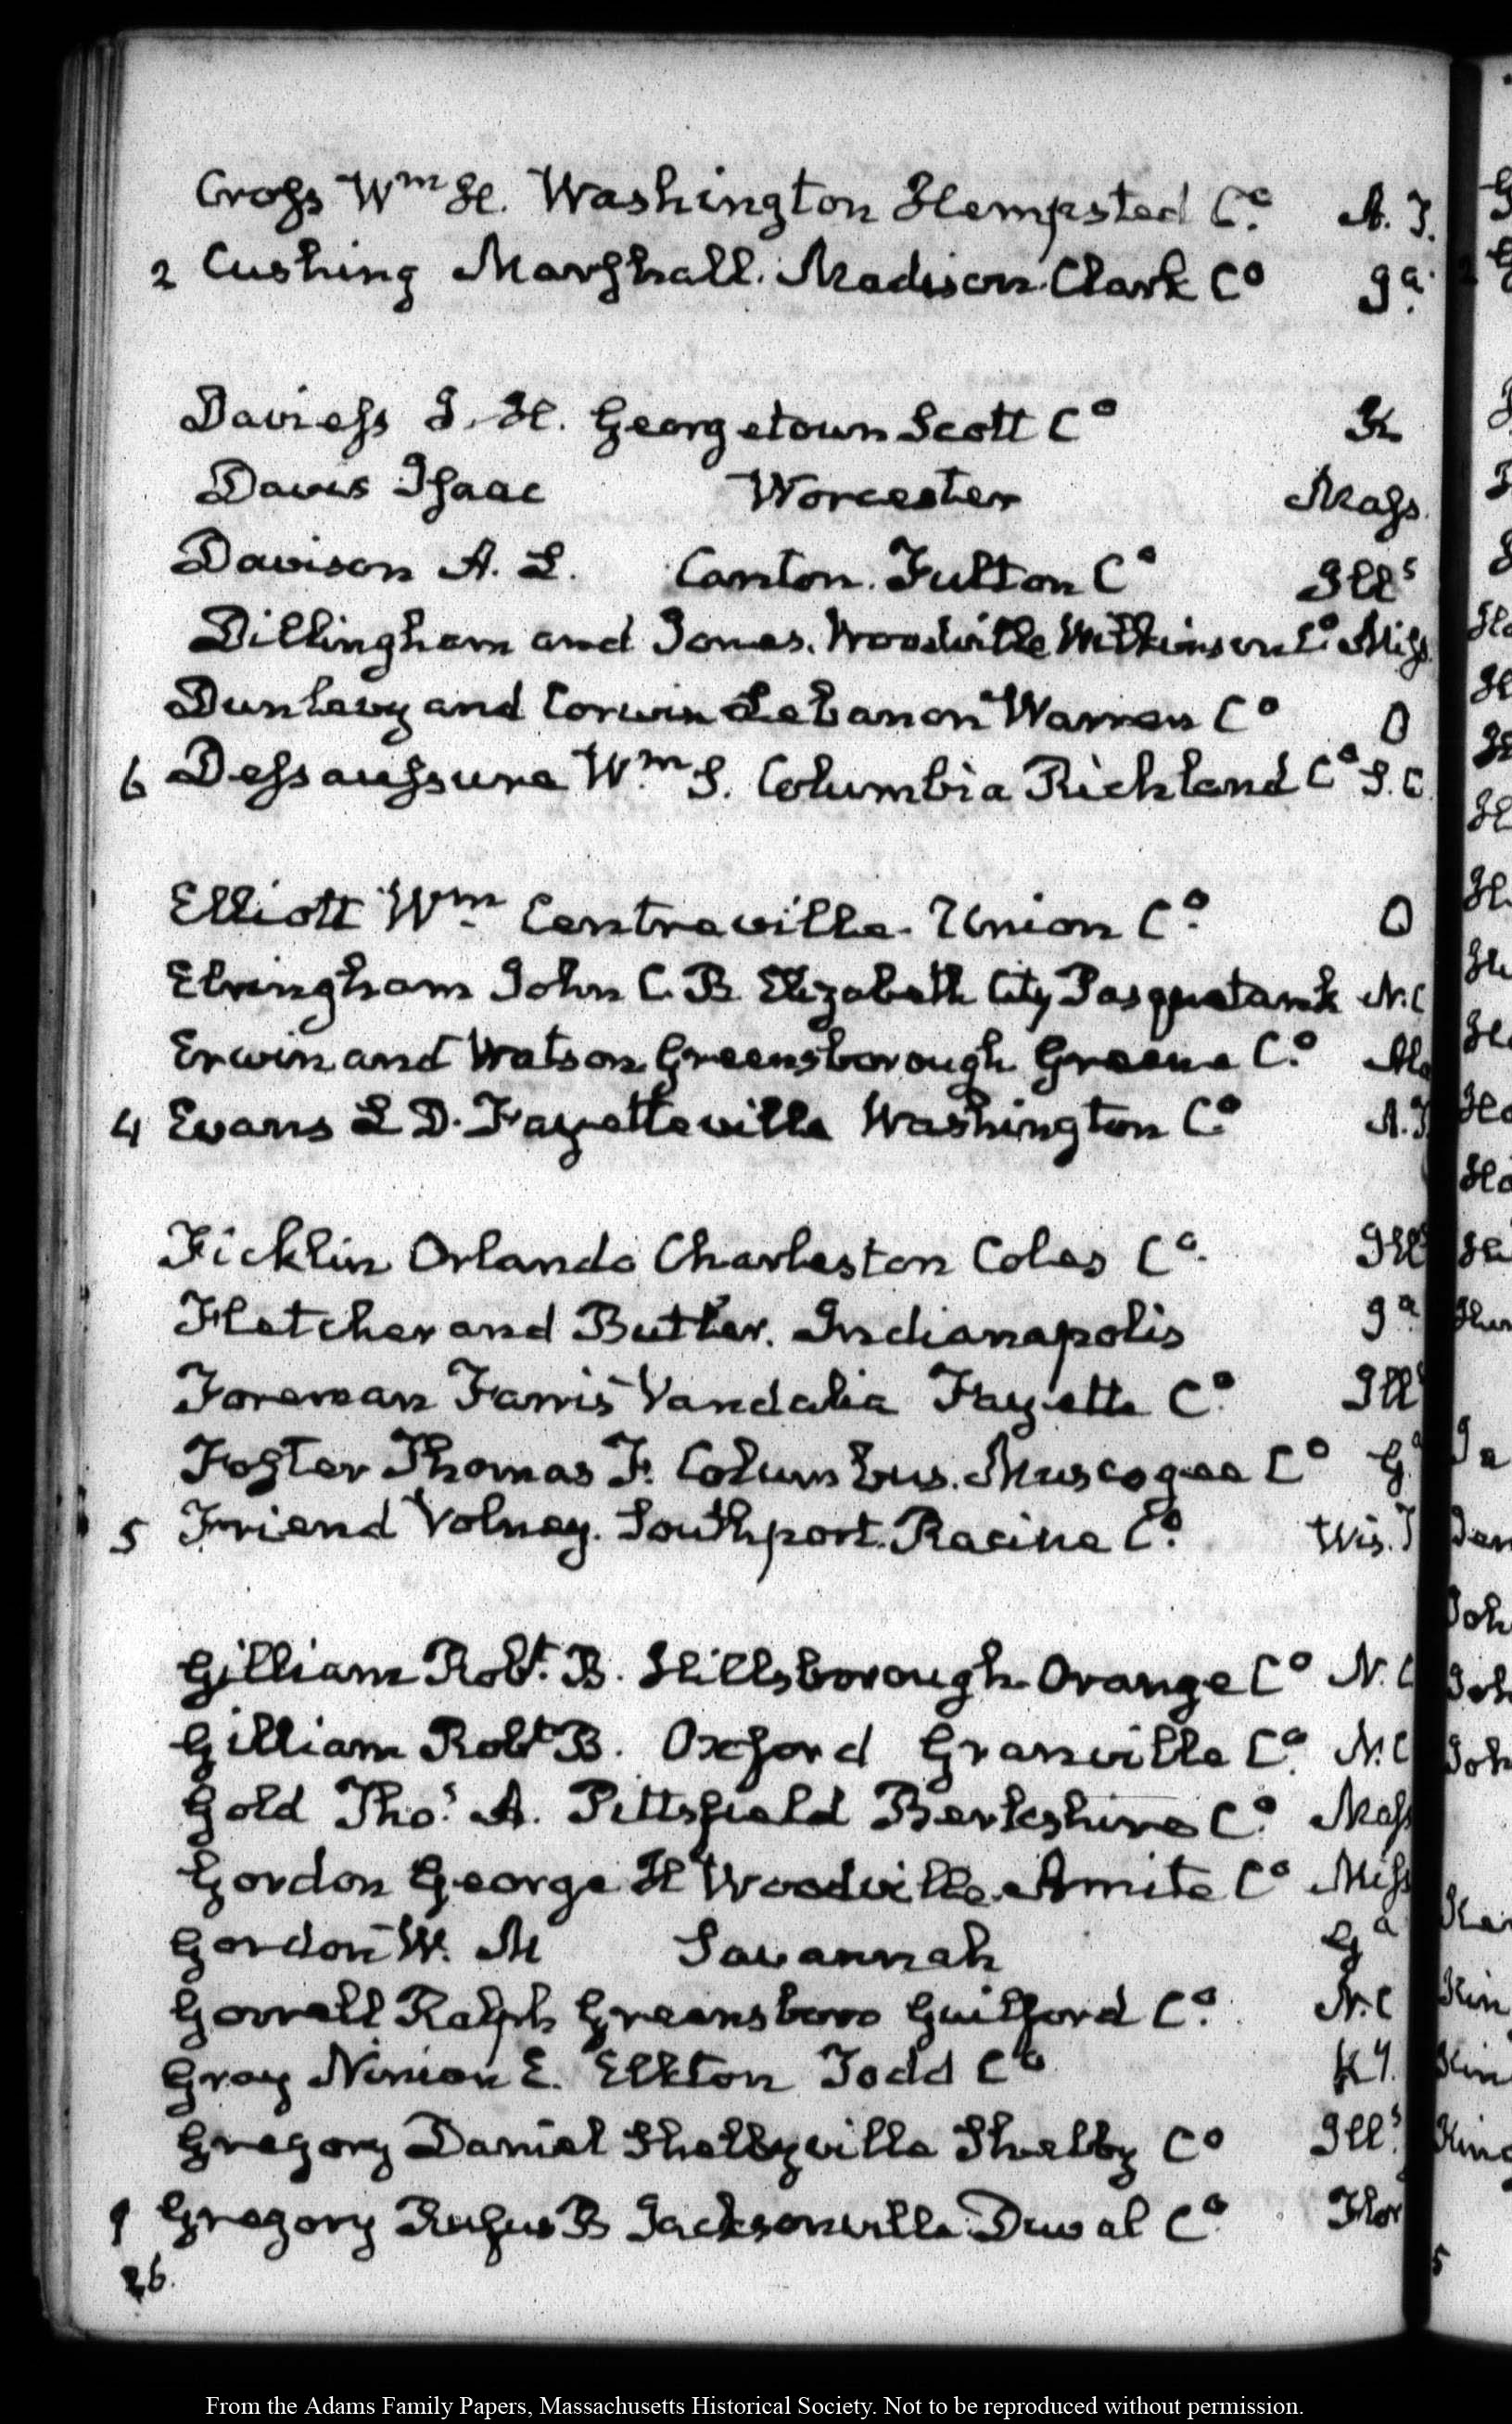 Cross Wm H. Washington Hempsted Co. A. T.
2 Cushing Marshall. Madison. Clark Co Ia.
Daviess S. H. Georgetown Scott Co K
Davis Isaac Worcester Mass.
Davison A. L. Canton. Fulton Co Ills
Dillingham and Jones. Woodville Wilkinson Co. Miss.
Dunlevy and Corwin Lebanon Warren Co O
6 Dessaussure Wm. S. Columbia Richland Co S. C.
Elliott Wm. Centreville. Union Co. O
Elringham John C. B. Elizabeth City Pasquotank N. C
Erwin and Watson. Greensborough Greene Co. Ala
4 Evans L D. Fayetteville Washington Co. A. T
Ficklin Orlando Charleston Coles Co. Ill
Fletcher and Butler. Indianapolis Ia.
Foreman Farris Vandalia Fayette Co. Ills
Foster Thomas F. Columbus. Muscogee Co Ga
5 Friend Volney. Southport. Racine Co. Wis. T
Gilliam Robt. B. Hillsborough. Orange Co N. C
Gilliam Robt B. Oxford Granville Co. N. C
Gold Thos. A. Pittsfield Berkshire Co. Mass
Gordon George H Woodville. Amite Co Miss
Gordon W. M Savannah Ga
Gorrell Ralph Greensboro Guilford Co. N. C
Gray Ninion E. Elkton Todd Co Ky.
Gregory Daniel Shelbyville Shelby Co Ills.
9 Gregory Rufus B Jacksonville. Duval Co. Flor
26.
From the Adams Family Papers, Massachusetts Historical Society. Not to be reproduced without permission.